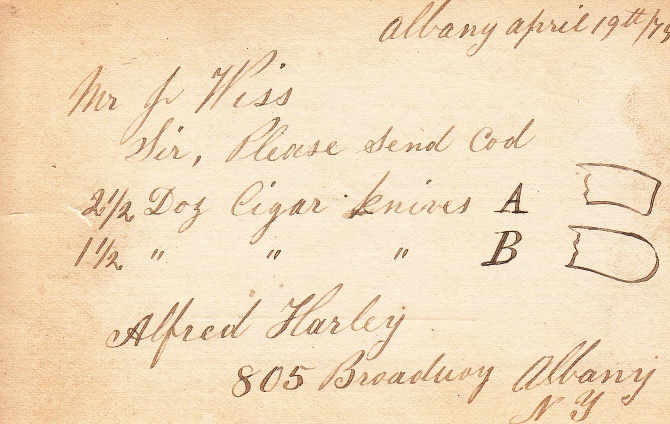 Albany april 19th/79
Mr J Wiss
Sir, Please send Cod
2 1/2 Doz Cigar knives A
1 1/2 " " " B
Alfred Harley
805 Broadway Albany
N Y